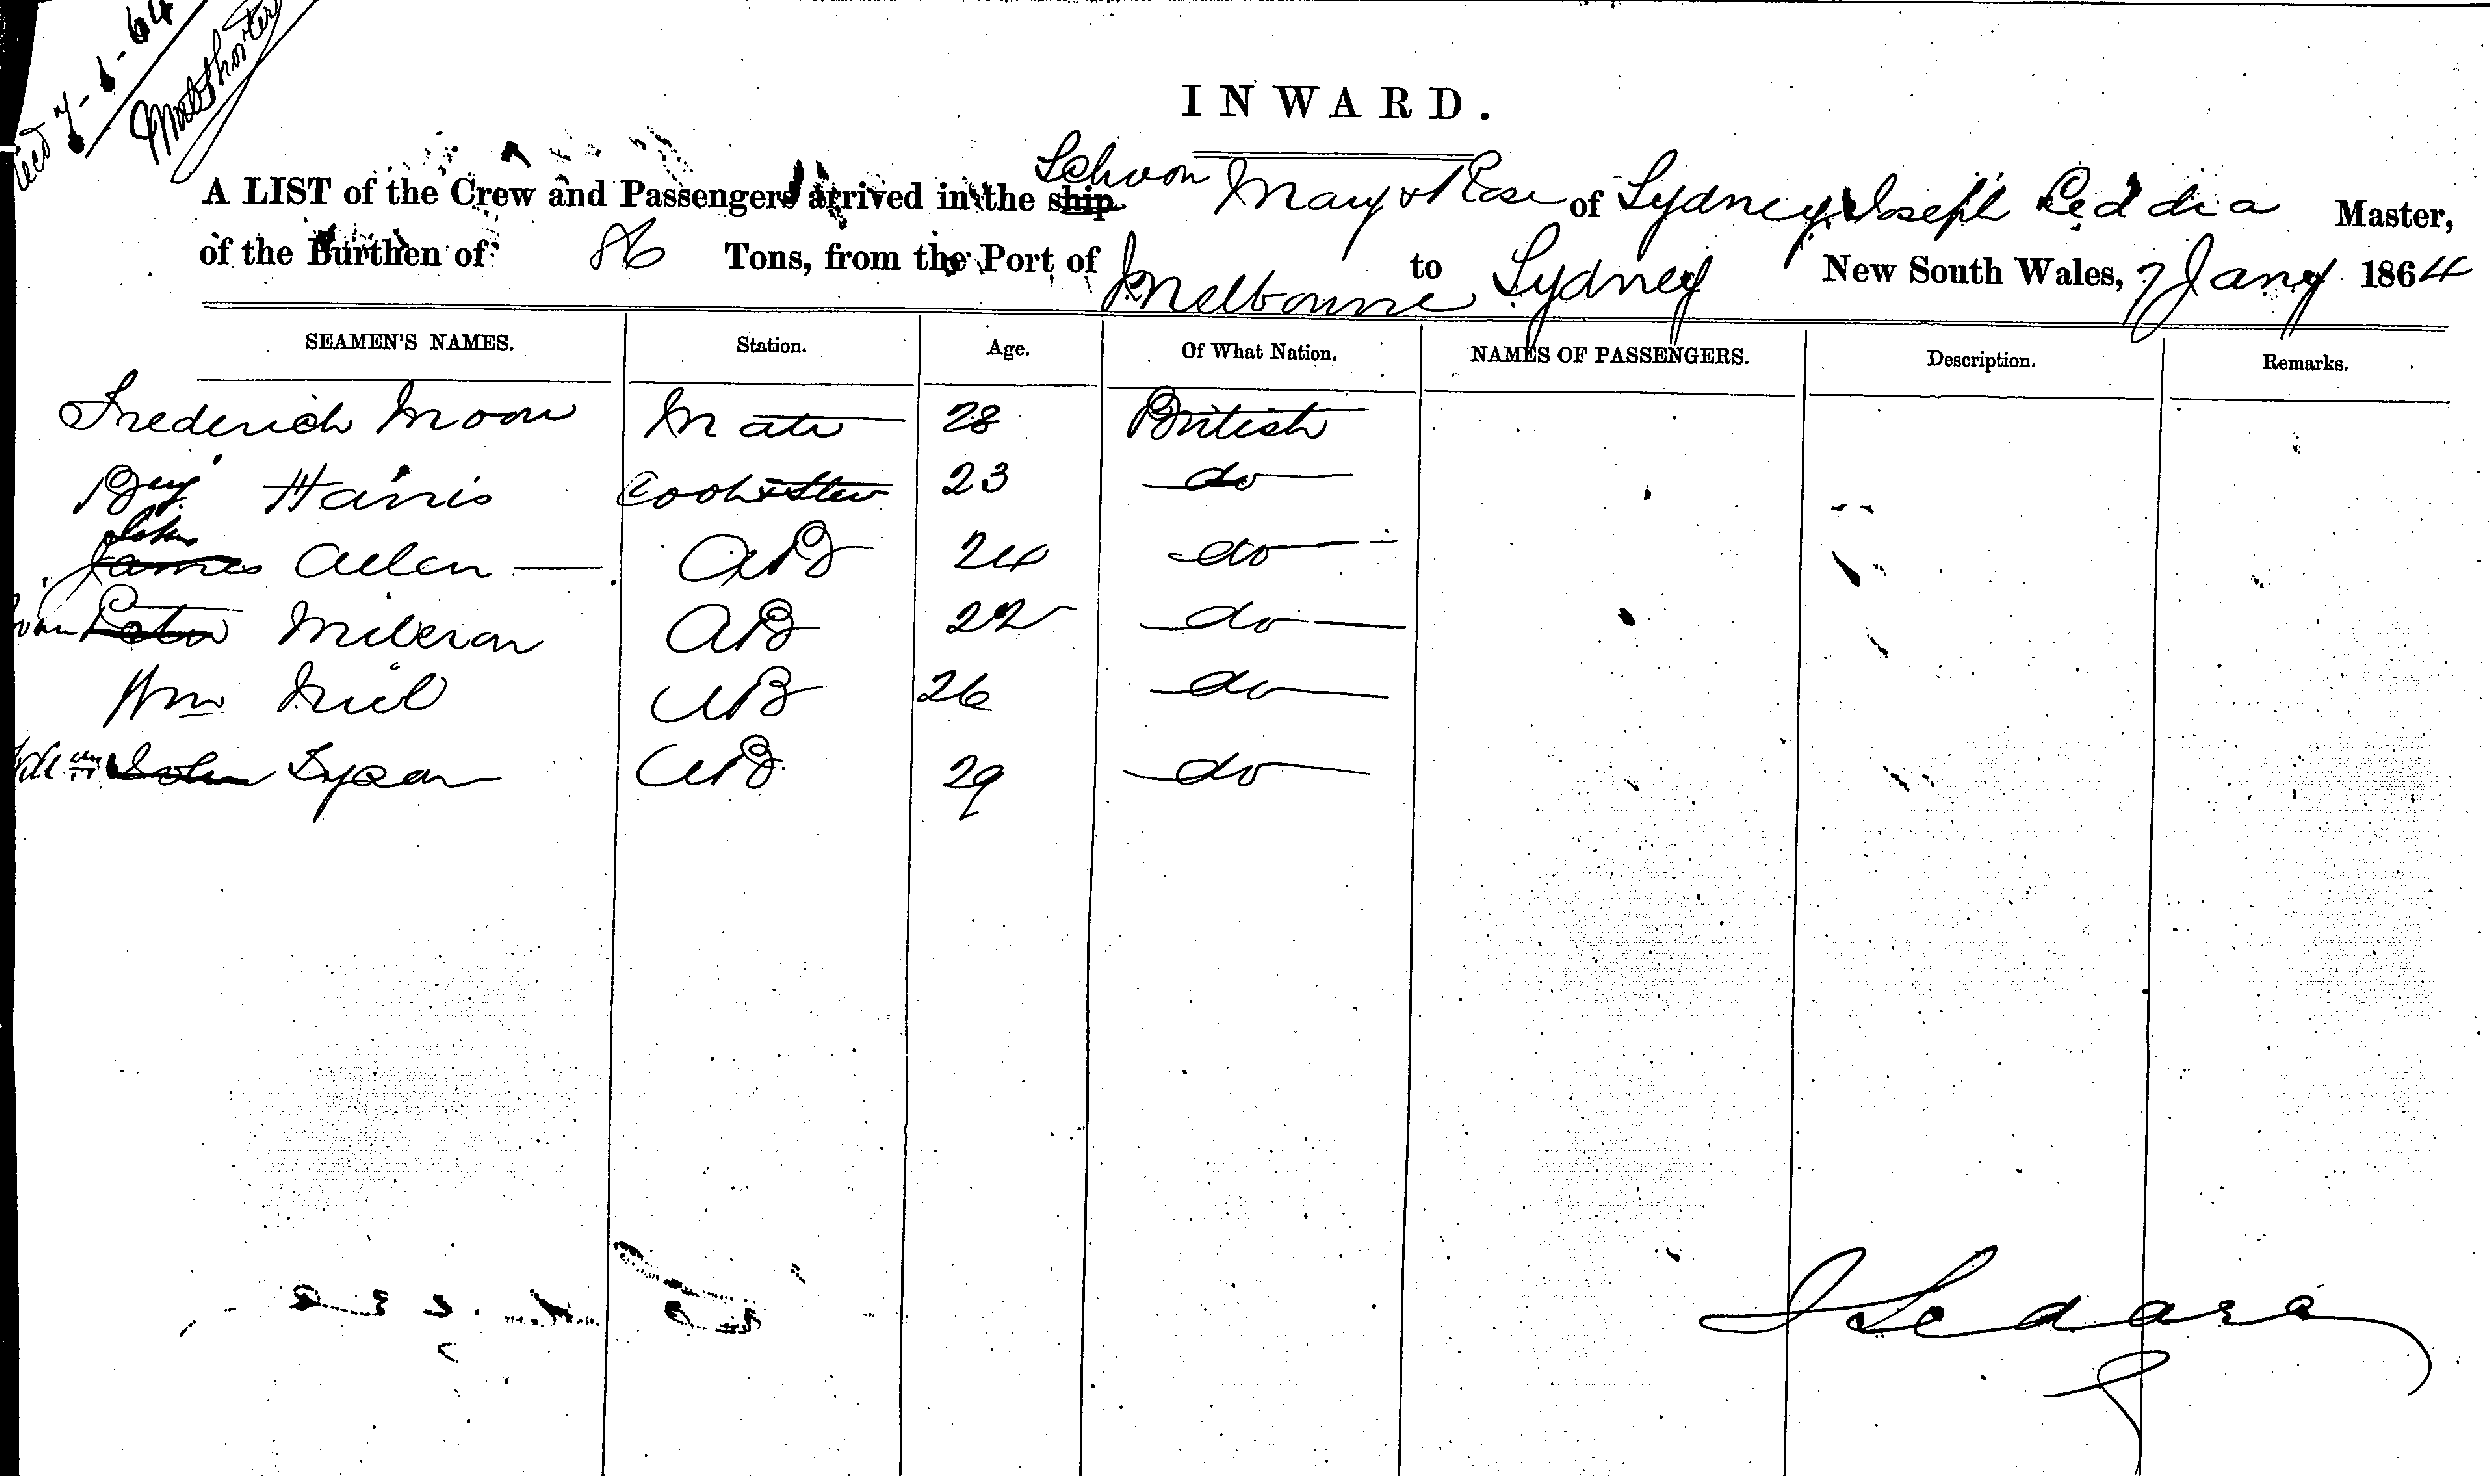 7-1-64
INWARD.
A LIST of the Crew and Passengers arrived in the ship Schoon Mary & Rose of Sydney, Joseph Master,
of the Burthen of 86 Tons, from the Port of Melbourne to Sydney New South Wales, 7 Jany 1864
SEAMEN'S NAMES. Station. Age. Of What Nation. NAMES OF PASSENGERS. Description. Remarks.
Frederick Moore Mate 28 British
Benj. Harris Cook & Stew 23 do
John
James Allen AB 24 do
Peter AB 22 do
Wm Niel AB 26 do
John AB 29 do